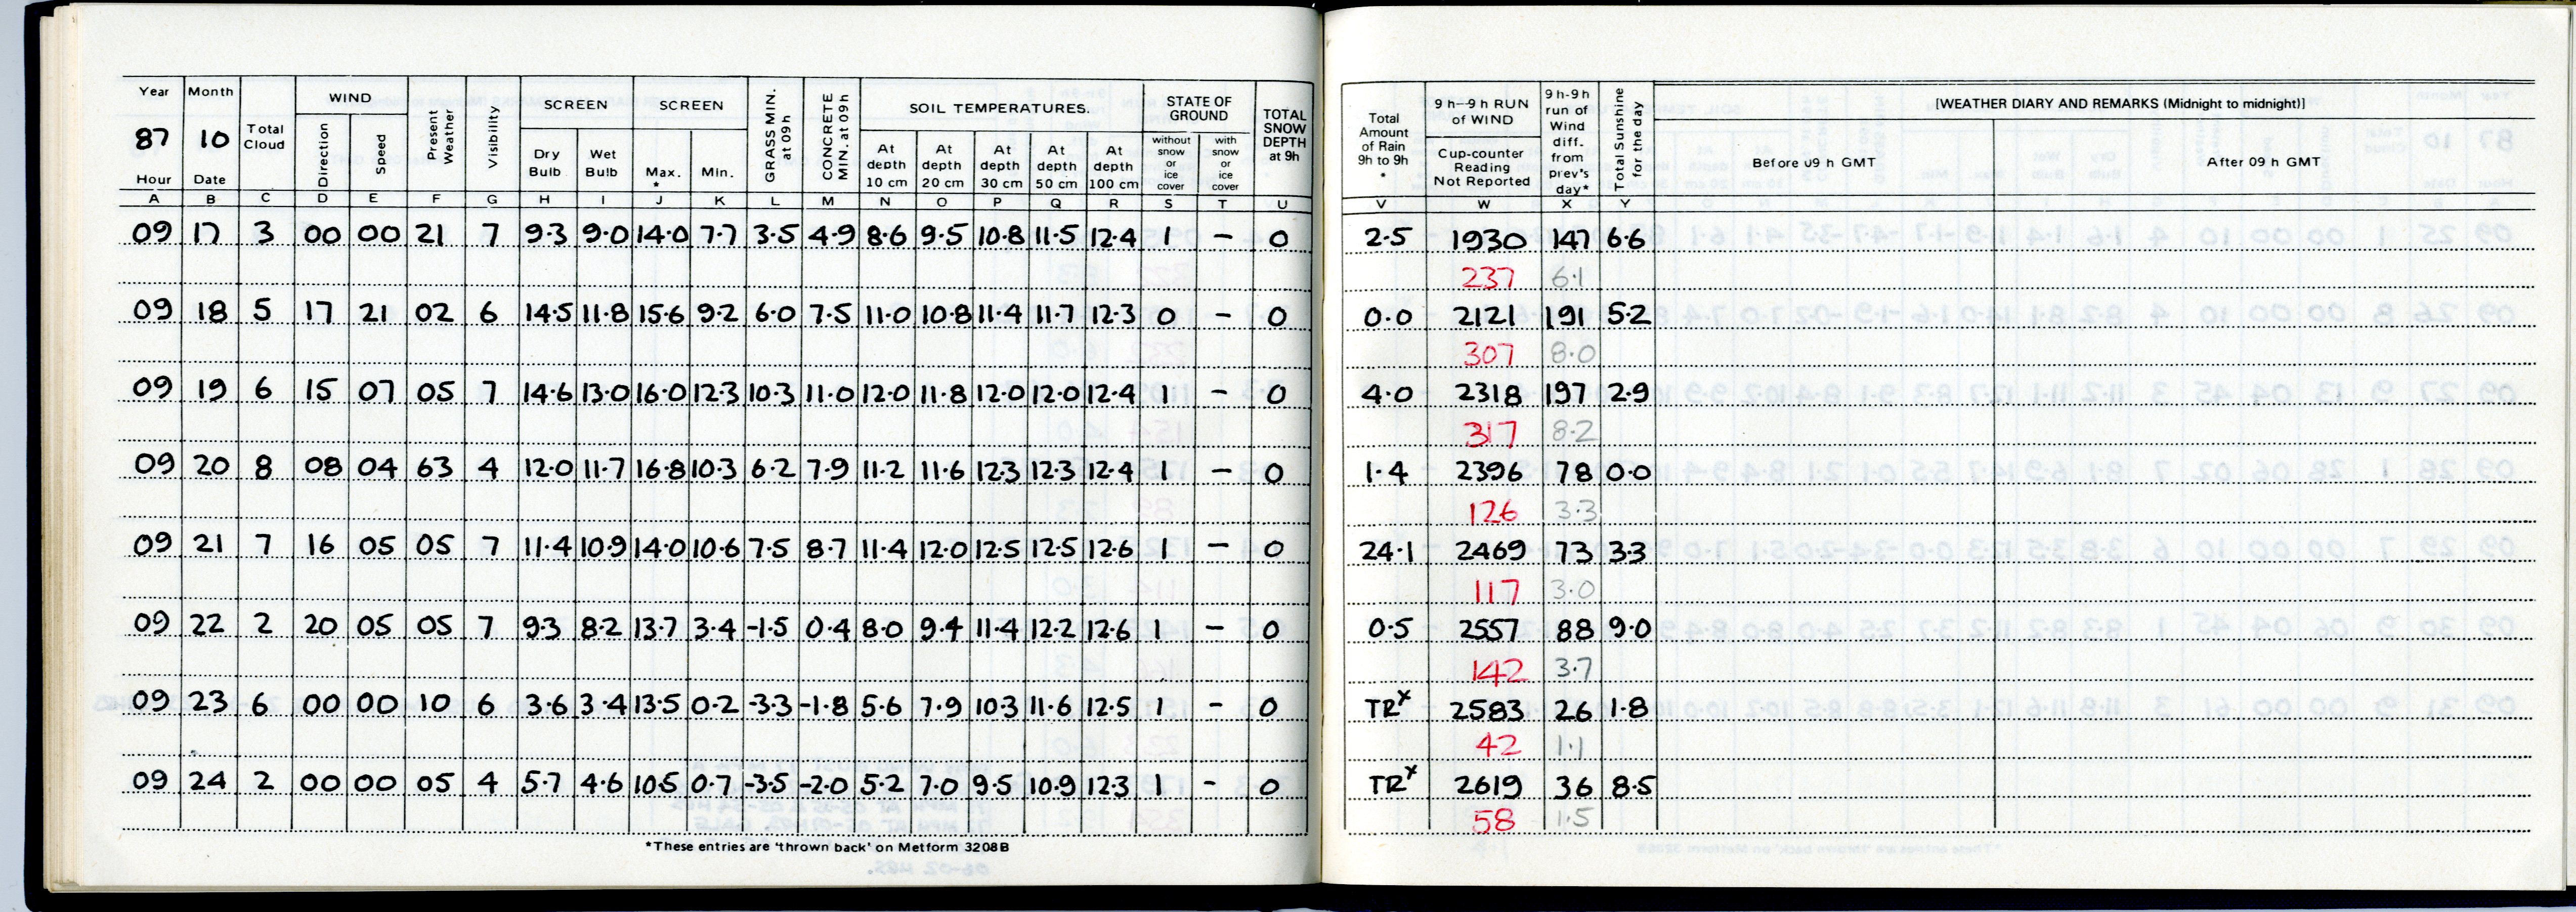 Year Month Total Cloud WIND Present Weather Visibility SCREEN SCREEN GRASS MIN. at 09h CONCRETE MIN. at 09h SOIL TEMPERATURES. STATE OF GROUND TOTAL SNOW DEPTH at 9h Total Amount of Rain 9h to 9h * 9h–9h RUN of WIND 9h-9h run of Wind diff. from prev's day* Total Sunshine for the day [WEATHER DIARY AND REMARKS (Midnight to midnight)]
87 10 Direction Speed Dry Bulb Wet Bulb Max. * Min. At depth 10 cm At depth 20 cm At depth 30 cm At depth 50 cm At depth 100 cm without snow or ice cover with snow or ice cover Cup-counter Reading Not Reported Before 09 h GMT After 09 h GMT
Hour Date
A B C D E F G H I J K L M N O P Q R S T U V W X Y
09 17 3 00 00 21 7 9.3 9.0 14.0 7.7 3.5 4.9 8.6 9.5 10.8 11.5 12.4 1 – 0 2.5 1930 147 6.6
237 6.1
09 18 5 17 21 02 6 14.5 11.8 15.6 9.2 6.0 7.5 11.0 10.8 11.4 11.7 12.3 0 – 0 0.0 2121 191 5.2
307 8.0
09 19 6 15 07 05 7 14.6 13.0 16.0 12.3 10.3 11.0 12.0 11.8 12.0 12.0 12.4 1 – 0 4.0 2318 197 2.9
317 8.2
09 20 8 08 04 63 4 12.0 11.7 16.8 10.3 6.2 7.9 11.2 11.6 12.3 12.3 12.4 1 – 0 1.4 2396 78 0.0
126 3.3
09 21 7 16 05 05 7 11.4 10.9 14.0 10.6 7.5 8.7 11.4 12.0 12.5 12.5 12.6 1 – 0 24.1 2469 73 3.3
117 3.0
09 22 2 20 05 05 7 9.3 8.2 13.7 3.4 -1.5 0.4 8.0 9.4 11.4 12.2 12.6 1 – 0 0.5 2557 88 9.0
142 3.7
09 23 6 00 00 10 6 3.6 3.4 13.5 0.2 -3.3 -1.8 5.6 7.9 10.3 11.6 12.5 1 – 0 TRx 2583 26 1.8
42 1.1
09 24 2 00 00 05 4 5.7 4.6 10.5 0.7 -3.5 -2.0 5.2 7.0 9.5 10.9 12.3 1 – 0 TRx 2619 36 8.5
58 1.5
*These entries are 'thrown back' on Metform 3208B